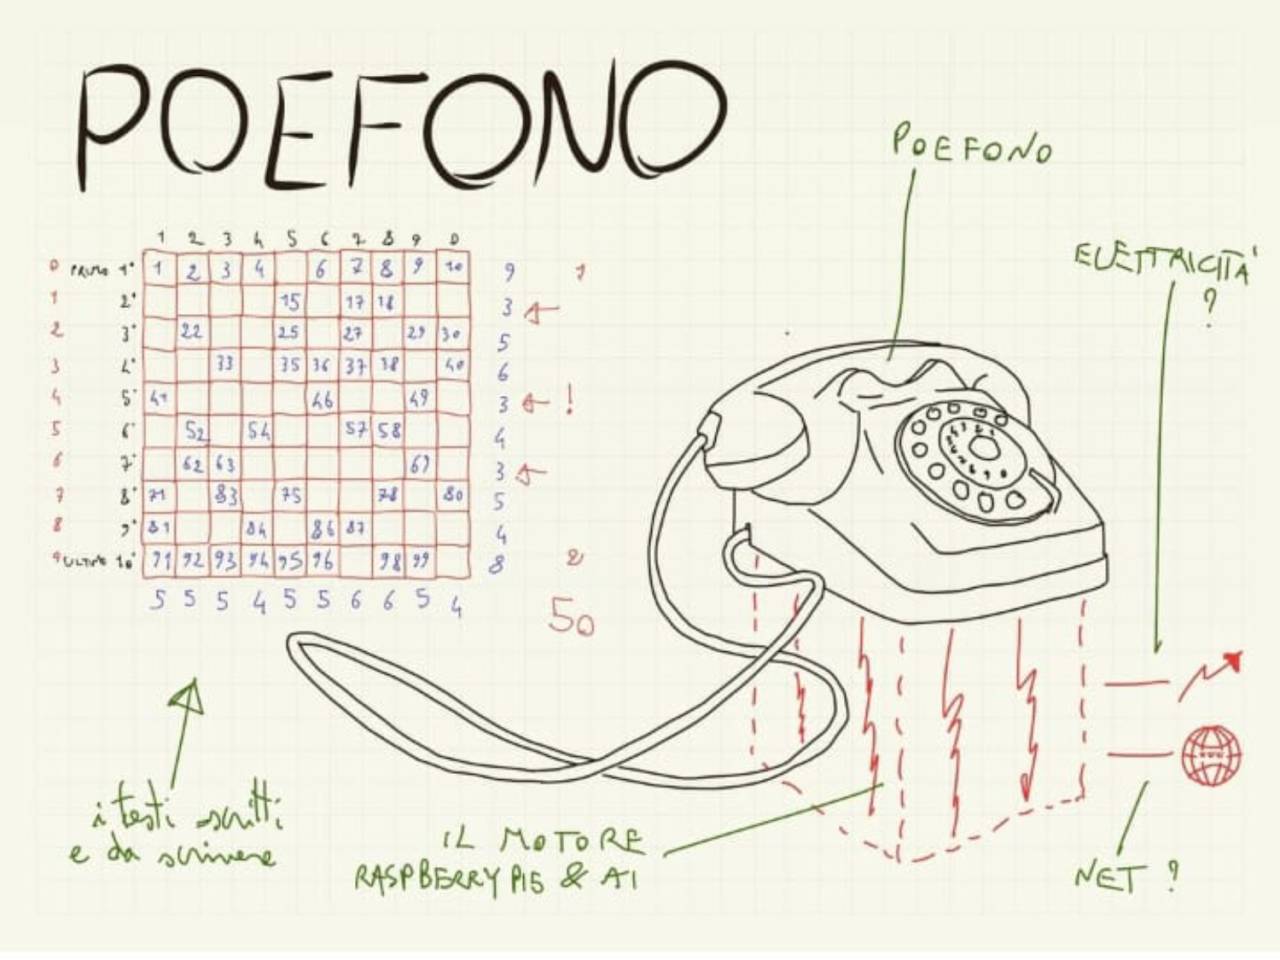 POEFONO
POEFONO
ELETTRICITA'
?
1 2 3 4 5 6 7 8 9 0
0 PRIMO 1° 1 2 3 4 6 7 8 9 10 9 1
1 2° 15 17 18 3
2 3° 22 25 27 29 30 5
3 4° 33 35 36 37 38 40 6
4 5° 41 46 49 3 !
5 6° 52 54 57 58 4
6 7° 62 63 3
7 8° 71 83 75 78 80 5
8 9° 81 84 86 87 4
9 ULTIMO 10° 91 92 93 94 95 96 98 99 8 2
5 5 5 4 5 5 6 6 5 4
50
i testi scritti
e da scrivere
IL MOTORE
RASPBERRY PI5 & AI
NET ?